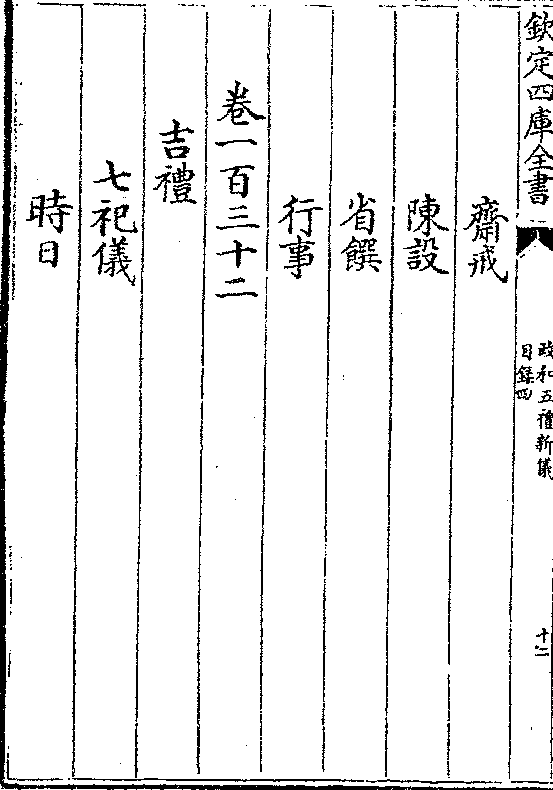 欽定四庫全書
政和五禮新儀
目錄四
十二
齋戒
陳設
省饌
行事
卷一百三十二
吉禮
七祀儀
時日